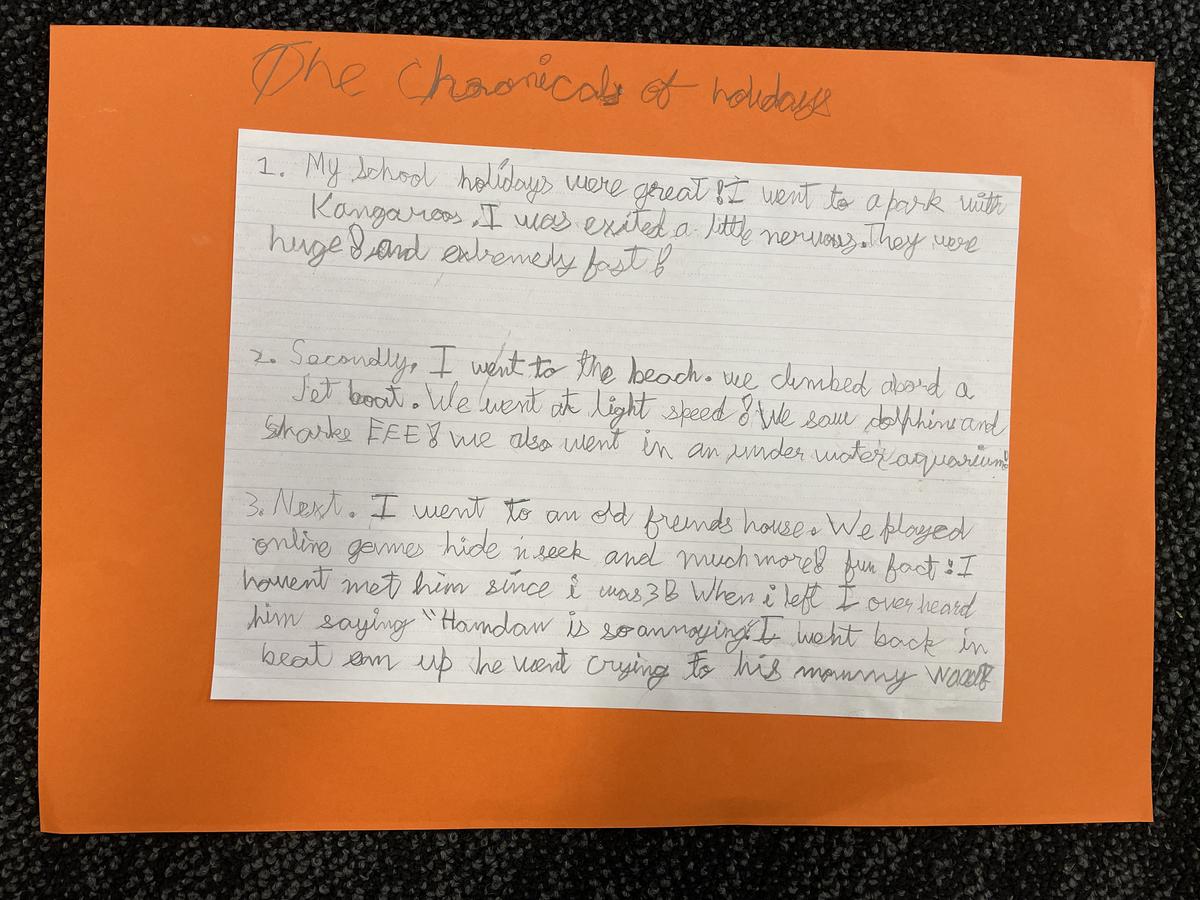 The Chronicals of holidays
1. My school holidays were great! I went to a park with
Kangaroos. I was exited a little nervous. They were
huge! and extremely fast!
2. Secondly, I went to the beach. we climbed abord a
Jet boat. We went at light speed! We saw dolphins and
sharks EEE! we also went in an under water aquarium!
3. Next. I went to an old freinds house. We played
online games hide n seek and much more! fun fact: I
havent met him since i was 3! When i left I over heard
him saying "Hamdan is so annoying" I went back in
beat em up he went crying to his mommy waaa!